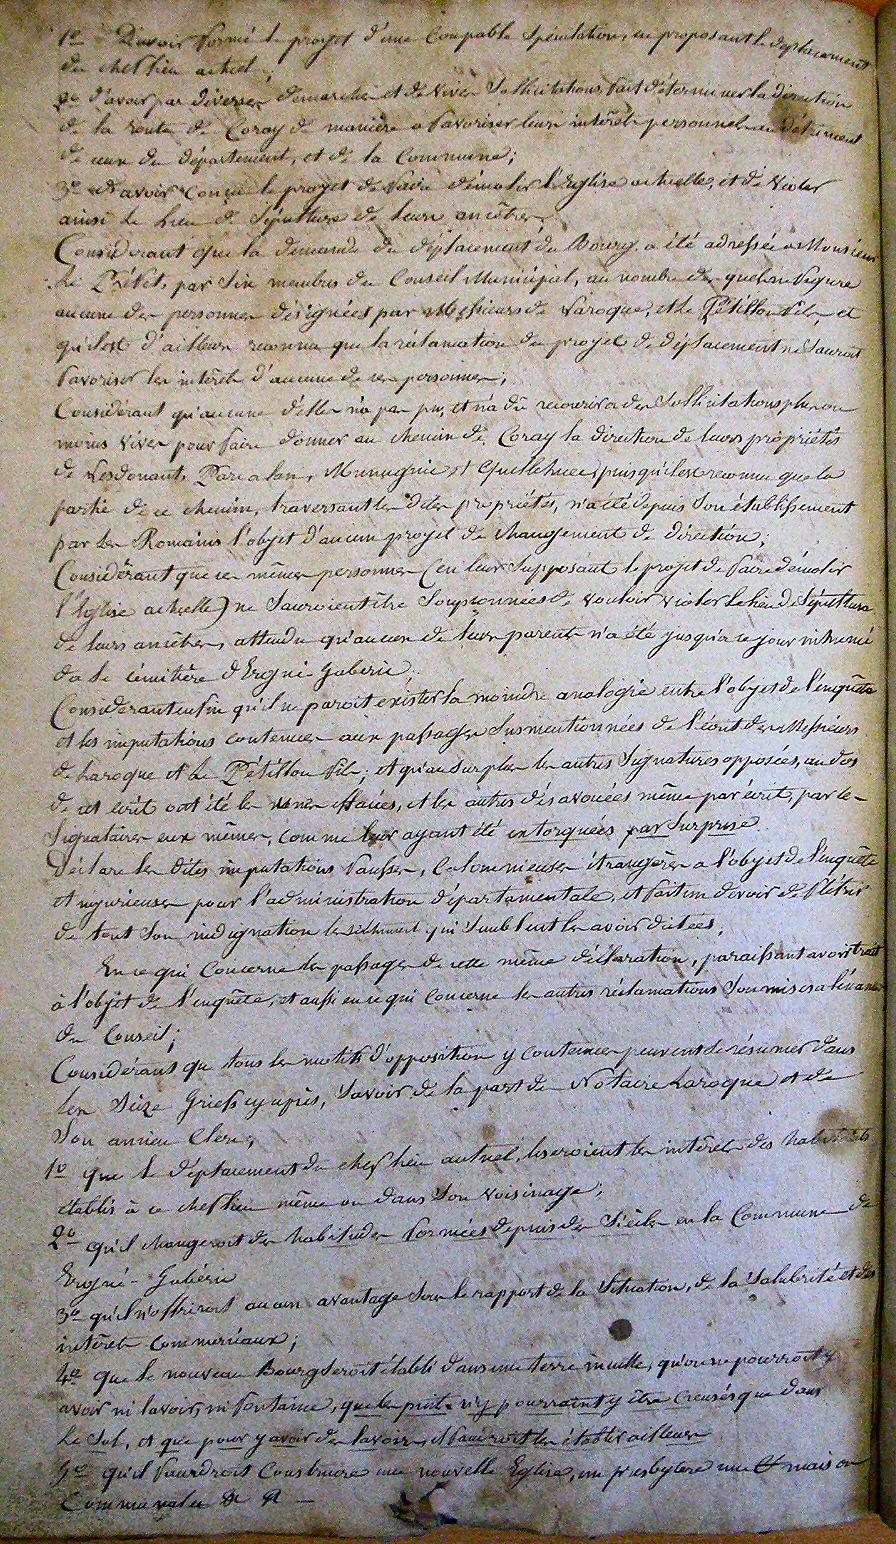 1º D'avoir formé le projet d'une Coupable Spéculation, en proposant le déplacement
du chef lieu actuel;
2º d'avoir par diverses demarches et de vives Sollicitations fait déterminer la direction
de la route de Coray de maniere a favoriser leurs intérêts personnels au détriment
de ceux du département, et de la Commune;
3º d'avoir Conçu le projet de faire démolir l'Eglise actuelle, et de Violer
ainsi le lieu de Sépulture de leurs ancêtres.
Considerant que la demande du déplacement du Bourg a été adressée a Monsieur
Le Préfet, par Six membres du Conseil Municipal, au nombre des quels ne figure
aucune des personnes désignées par Messieurs de Laroque, et Le Pétillon fils, et
qu'il est d'ailleurs reconnu que la réclamation du projet de déplacement ne Sauroit
favoriser les intérêts d'aucune de ces personnes;
Considérant qu'aucune d'elles n'a pas pu, et n'a dû recourir a des Sollicitations plus ou
moins vives pour faire donner au chemin de Coray la direction de leurs propriétés
de Lesdonant, Parc a lan, Munuguic et Quillihuec, puisqu'il est reconnu que la
partie de ce chemin, traversant les dites propriétés, n'a été depuis Son établissement
par les Romains l'objet d'aucun projet de changement de direction;
Considérant que ces mêmes personnes (en leur Supposant le projet de faire démolir
l'Eglise actuelle) ne Sauroient être Soupçonnées de vouloir violer le lieu de Sépulture
de leurs ancêtres, attendu qu'aucun de leurs parents n'a été jusqu'a ce jour inhumé
da le cimitière d'Ergué-Gaberic;
Considerant enfin qu'il ne paroit exister la moindre analogie entre l'objet de l'enquête
et les imputations contenues aux passages Susmentionnées de l'écrit des Messieurs
de Laroque et Le Pétillon fils; et qu'au Surplus les autres Signatures opposées, au dos
de cet écrit ont été les unes effacées, et les autres désavouées même par écrit, par les
Signataires eux mêmes, comme leur ayant été extorquées par Surprise.
Déclare les dites imputations fausses, Calomnieuses étrangères a l'objet de l'enquête
et injurieuses pour l'administration départementale, et fait un devoir de flétrir
de tout Son indignation les sentiments qui Semblent les avoir dictées.
En ce qui Concerne les passages de cette même déclaration, paraissant avoir trait
à l'objet de l'enquête, et aussi en ce qui Concerne les autres réclamations Soumises a l'examen
du Conseil;
Considérant que tous les motifs d'opposition y contenues peuvent se résumer dans
les Seize Griefs cy après, Savoir de la part de Notaire Laroque et de
Son ancien Clerc;
1º que le déplacement du chef lieu actuel, léseroient les intérêts des habitants
établis à ce chef lieu même ou dans Son voisinage;
2º qu'il changeroit des habitudes formées depuis des Siècles en la Commune de
Ergué-Gabéric
3º qu'il n'offriroit aucun avantage Sous le rapport de la Situation, de la Salubrité et des
intérêts Commerciaux;
4º que le nouveau Bourg Seroit établi dans une terre inculte, qu'on ne pourroit y
avoir ni lavoir, ni fontaine, que les puits n'y pourraient y être creusés que dans
Le Sol, et que pour y avoir des lavoirs, il faudroit les établir ailleurs
5º qu'il faudroit Construire une nouvelle Eglise, un presbytère une & maison
Communale & &